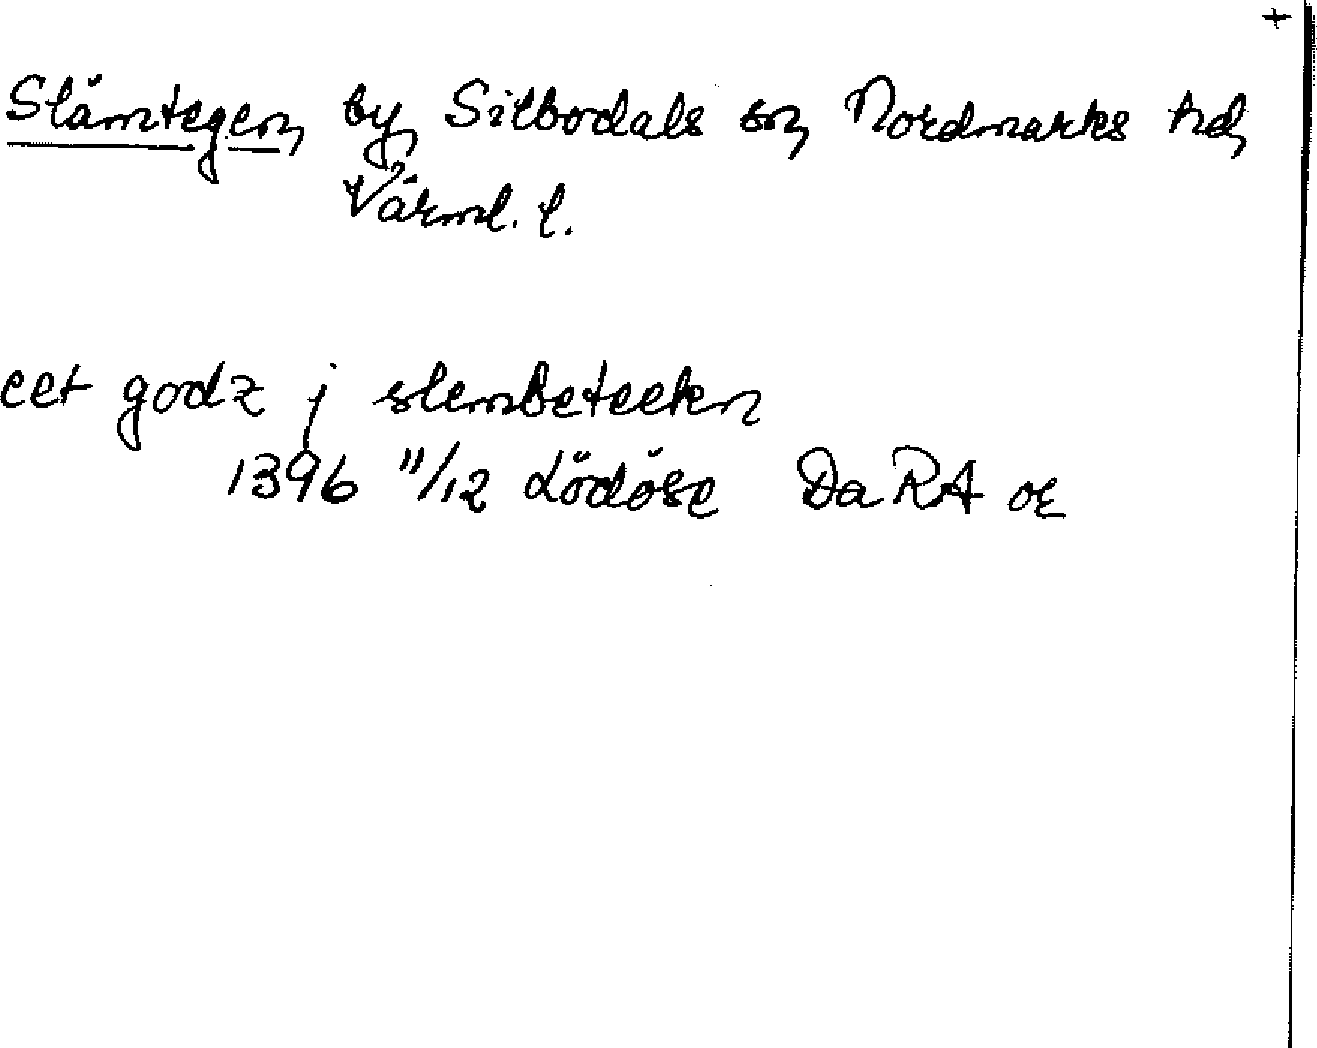 +
Slämtegen, by, Silbodals sn, Nordmarks hd,
Värml. l.
eet godz j slembeteekn
1396 11/12 Lödöse DaRA or